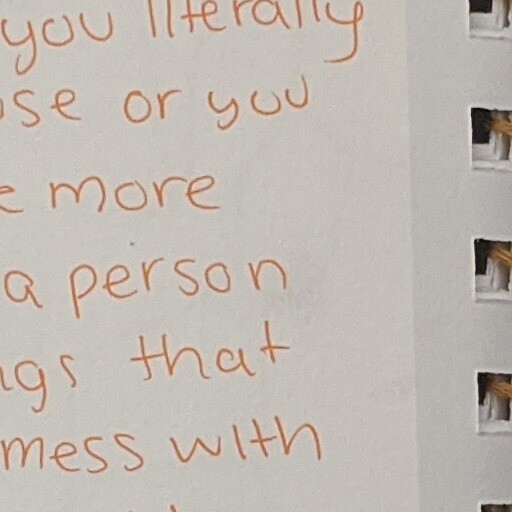 you literally
or you
more
a person
that
mess with